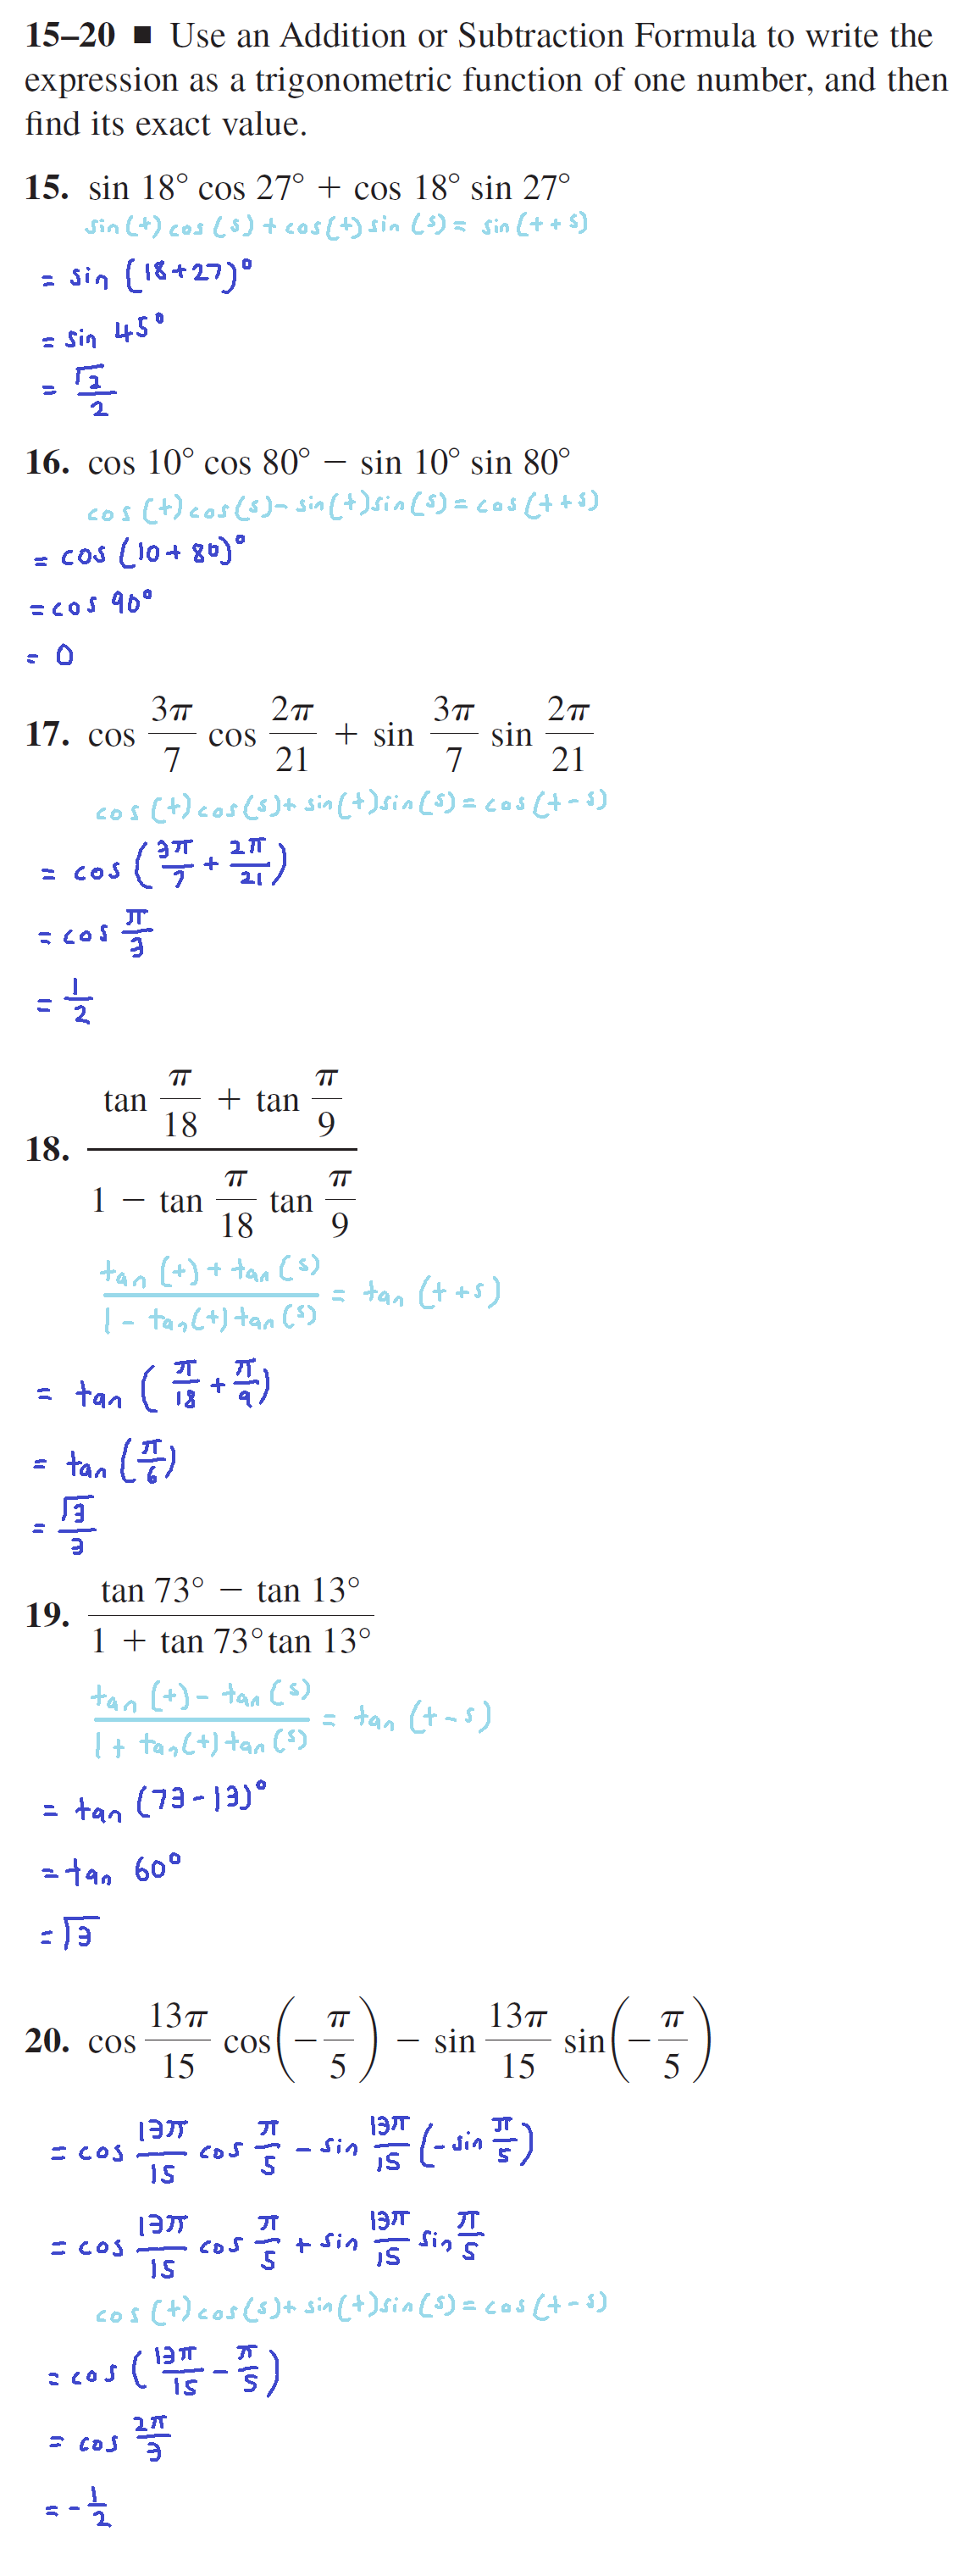 15–20 ■ Use an Addition or Subtraction Formula to write the
expression as a trigonometric function of one number, and then
find its exact value.
15. sin 18° cos 27° + cos 18° sin 27°
sin(t) cos(s) + cos(t) sin(s) = sin(t + s)
= sin (18+27)°
= sin 45°
= √2/2
16. cos 10° cos 80° − sin 10° sin 80°
cos(t) cos(s) - sin(t) sin(s) = cos(t + s)
= cos (10 + 80)°
= cos 90°
= 0
17. cos 3π/7 cos 2π/21 + sin 3π/7 sin 2π/21
cos(t) cos(s) + sin(t) sin(s) = cos(t - s)
= cos (3π/7 + 2π/21)
= cos π/3
= 1/2
18. (tan π/18 + tan π/9)/(1 − tan π/18 tan π/9)
(tan(t) + tan(s))/(1 - tan(t) tan(s)) = tan(t + s)
= tan (π/18 + π/9)
= tan (π/6)
= √3/3
19. (tan 73° − tan 13°)/(1 + tan 73° tan 13°)
(tan(t) - tan(s))/(1 + tan(t) tan(s)) = tan(t - s)
= tan (73 - 13)°
= tan 60°
= √3
20. cos 13π/15 cos(−π/5) − sin 13π/15 sin(−π/5)
= cos 13π/15 cos π/5 - sin 13π/15 (- sin π/5)
= cos 13π/15 cos π/5 + sin 13π/15 sin π/5
cos(t) cos(s) + sin(t) sin(s) = cos(t - s)
= cos (13π/15 - π/5)
= cos 2π/3
= - 1/2